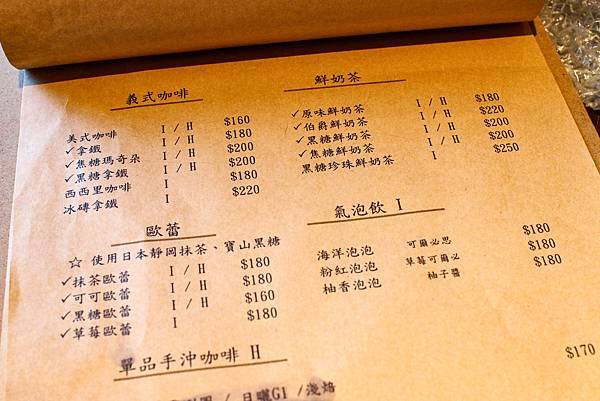 義式咖啡
美式咖啡 I / H $160
✓拿鐵 I / H $180
✓焦糖瑪奇朵 I / H $200
✓黑糖拿鐵 I / H $200
西西里咖啡 I $180
冰磚拿鐵 I $220
歐蕾
☆ 使用日本靜岡抹茶、寶山黑糖
✓抹茶歐蕾 I / H $180
✓可可歐蕾 I / H $180
✓黑糖歐蕾 I / H $160
✓草莓歐蕾 I $180
鮮奶茶
✓原味鮮奶茶 I / H $180
✓伯爵鮮奶茶 I / H $220
✓黑糖鮮奶茶 I / H $200
✓焦糖鮮奶茶 I / H $200
黑糖珍珠鮮奶茶 I $250
氣泡飲 I
海洋泡泡 可爾必思 $180
粉紅泡泡 草莓可爾必 $180
柚香泡泡 柚子醬 $180
單品手沖咖啡 H
/ 日曬G1 /淺焙 $170